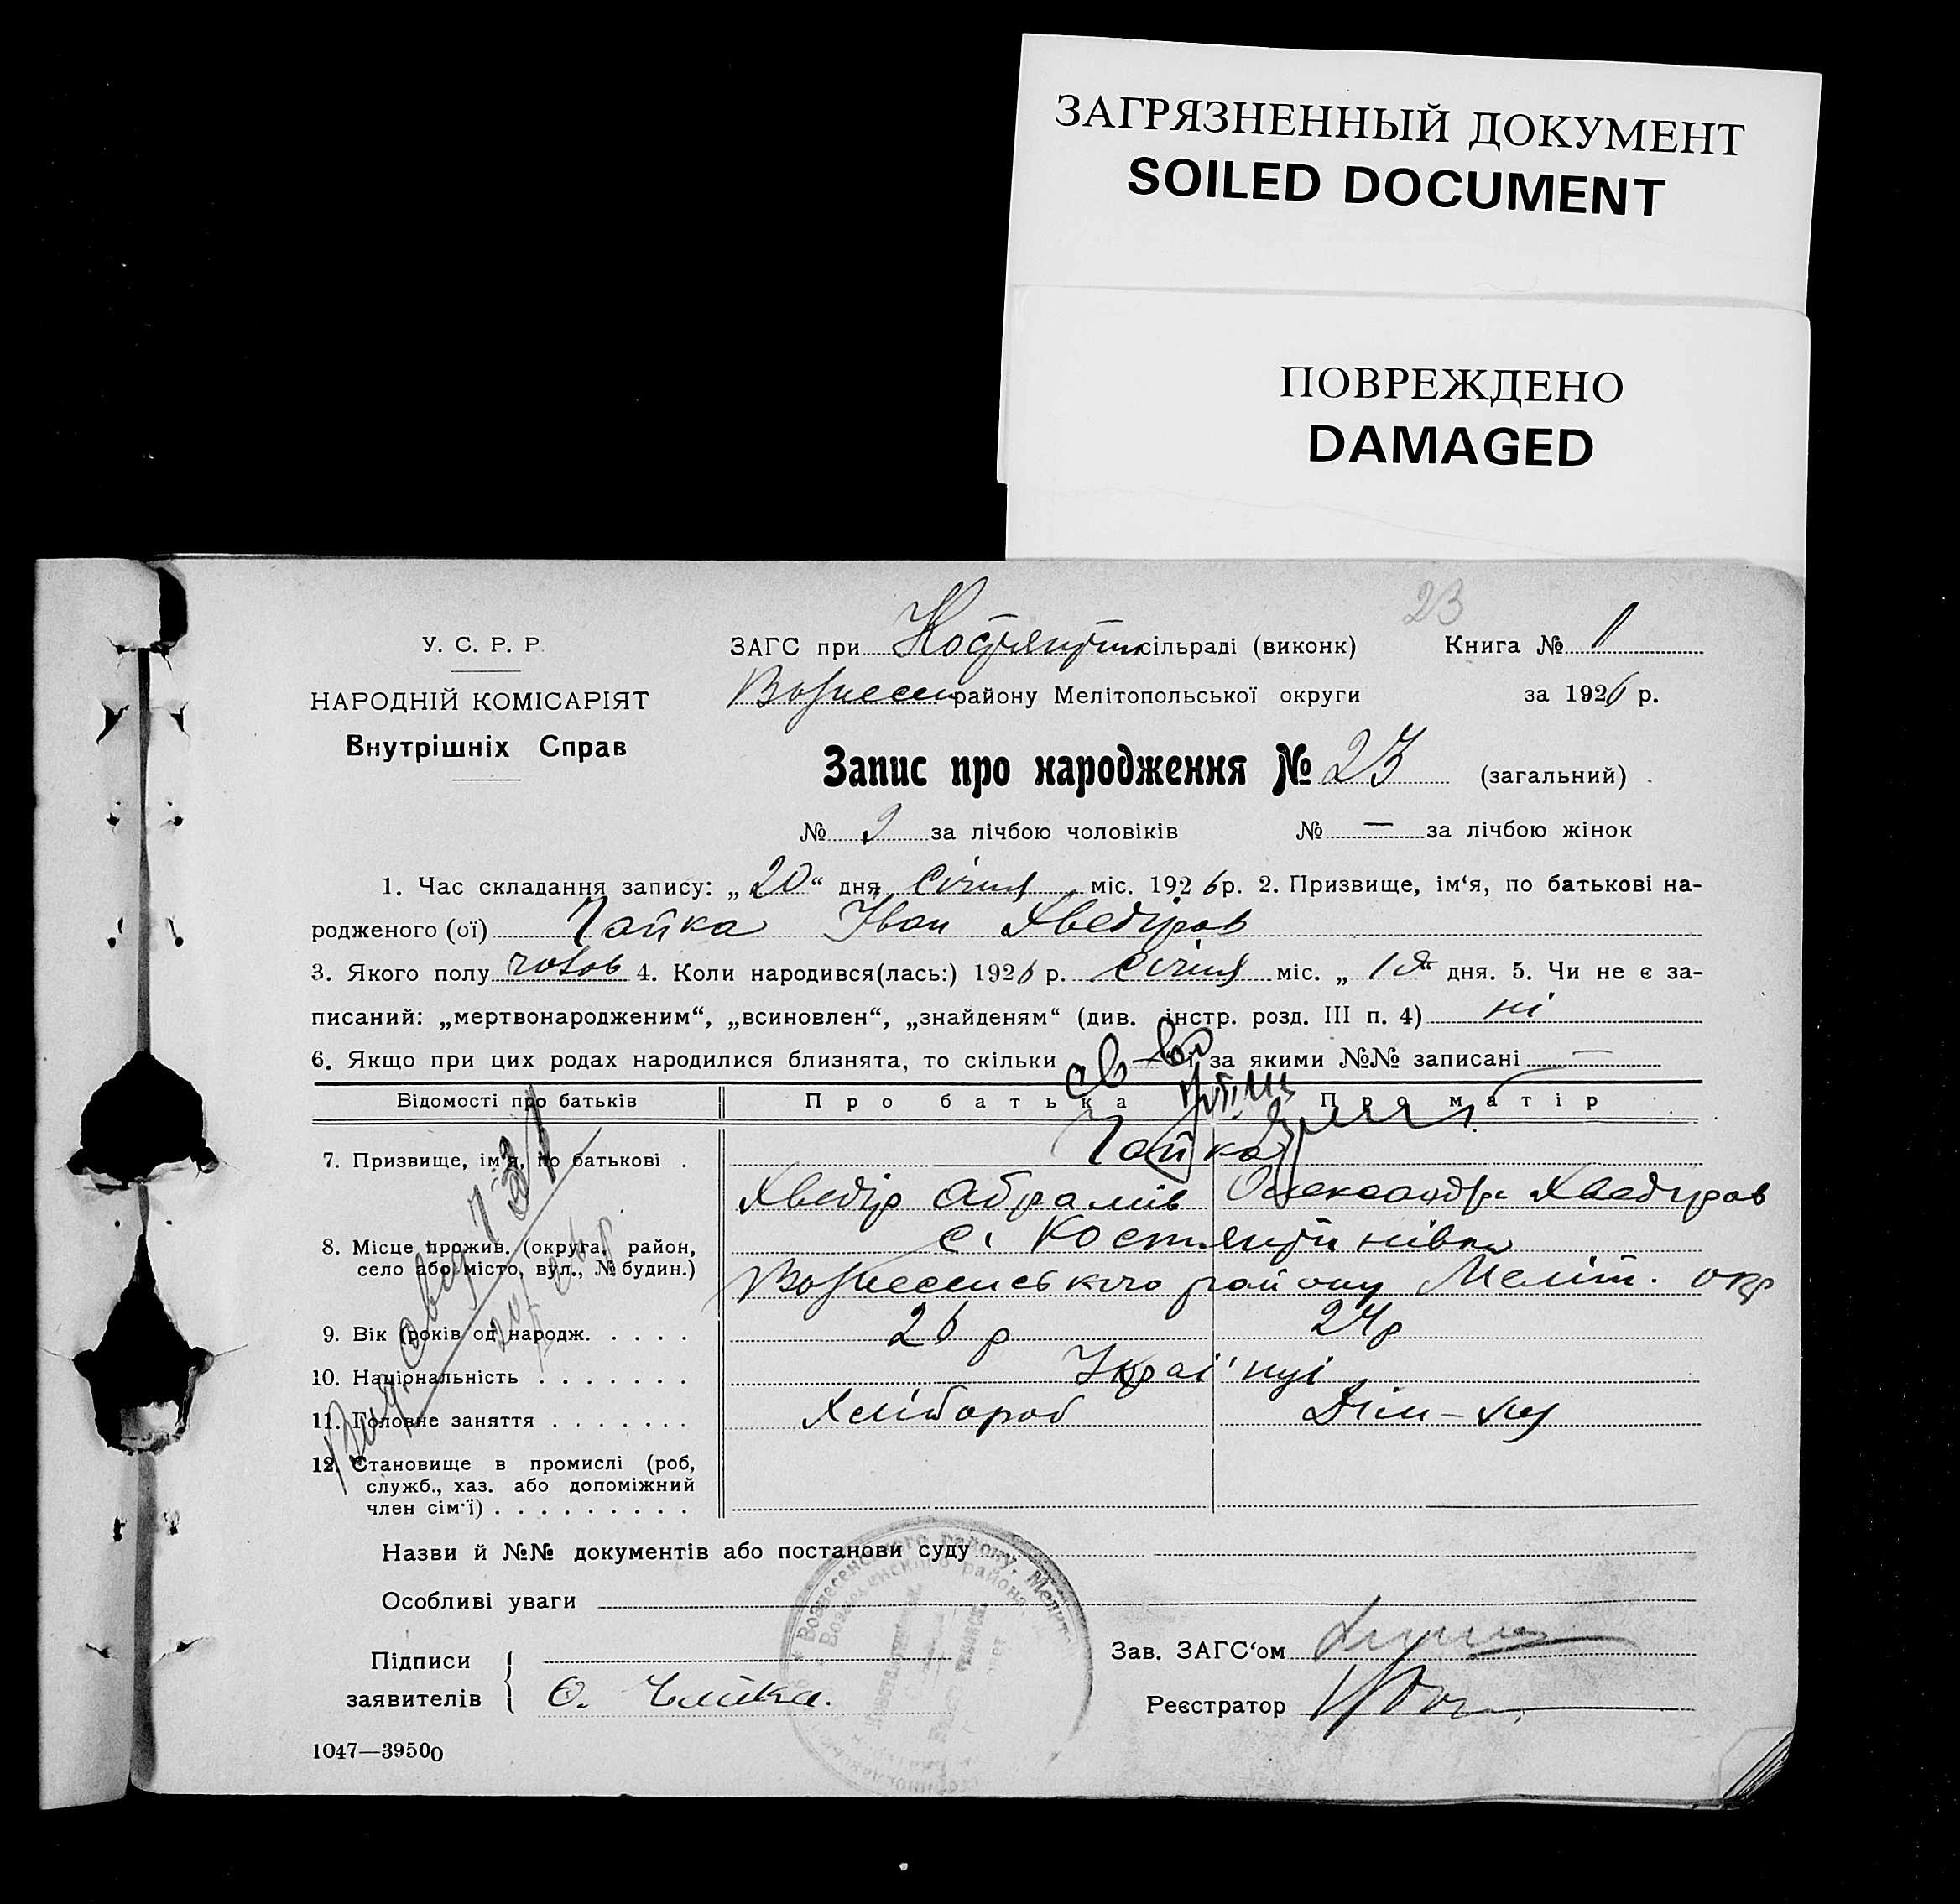 ЗАГРЯЗНЕННЫЙ ДОКУМЕНТ
SOILED DOCUMENT
ПОВРЕЖДЕНО
DAMAGED
23
У. С. Р. Р.
ЗАГС при Костянтин сільраді (виконк) Книга № 1
НАРОДНІЙ КОМІСАРІЯТ
Вознесен району Мелітопольської округи за 1926 р.
Внутрішніх Справ
Запис про народження № 23 (загальний)
№ 9 за лічбою чоловіків № — за лічбою жінок
1. Час складання запису: „20“ дня Січня міс. 1926 р. 2. Призвище, ім‘я, по батькові на-
родженого (ої) Чайка Іван Хведіров
3. Якого полу чолов 4. Коли народився(лась:) 1926 р. Січня міс. „ дня. 5. Чи не є за-
писаний: „мертвонародженим“, „всиновлен“, „знайденям“ (див. інстр. розд. III п. 4) ні
6. Якщо при цих родах народилися близнята, то скільки за якими №№ записані —
Відомості про батьків Про батька Про матір
7. Призвище, ім‘я, по батькові . Чайка
Хведір Абрамів Олександра Хведиров
8. Місце прожив. (округа, район, с. Костянтинівка
село або місто, вул., № будин.) Вознесенського району Меліт. окр
9. Вік (років од народж. . . . . . 26 р 24 р
10. Національність . . . . . . . Украі'нці
11. Головне заняття . . . . . . . Хлібороб Дім-
12. Становище в промислі (роб,
служб., хаз. або допоміжний
член сім‘ї) . . . . . . . . .
Назви й №№ документів або постанови суду
Особливі уваги
Вознесенського району, Мелит
Підписи Зав. ЗАГС‘ом
заявителів О. Чайка. Реєстратор
1047—39500